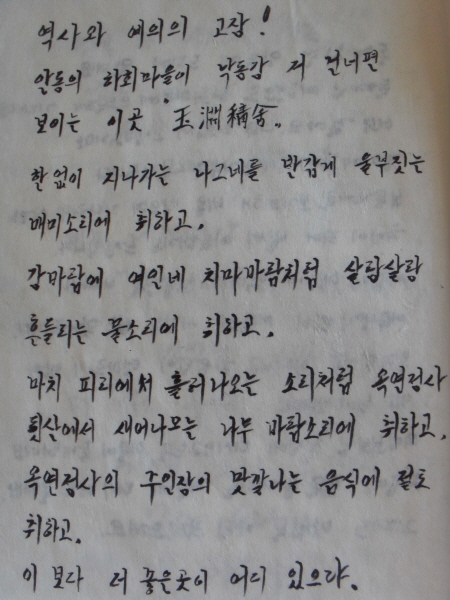 역사와 예의의 고장!
안동의 하회마을이 낙동강 저 건너편
보이는 이곳 "玉淵精舍"
한없이 지나가는 나그네를 반갑게 울부짓는
매미소리에 취하고,
강바람에 여인네 치마바람처럼 살랑살랑
흔들리는 물소리에 취하고,
마치 피리에서 흘러나오는 소리처럼 옥연정사
툇살에서 새어나오는 나무 바람소리에 취하고,
옥연정사의 주인장의 맛깔나는 음식에 절로
취하고,
이 보다 더 좋은곳이 어디 있으랴.